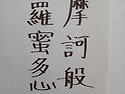 摩訶般
羅蜜多心